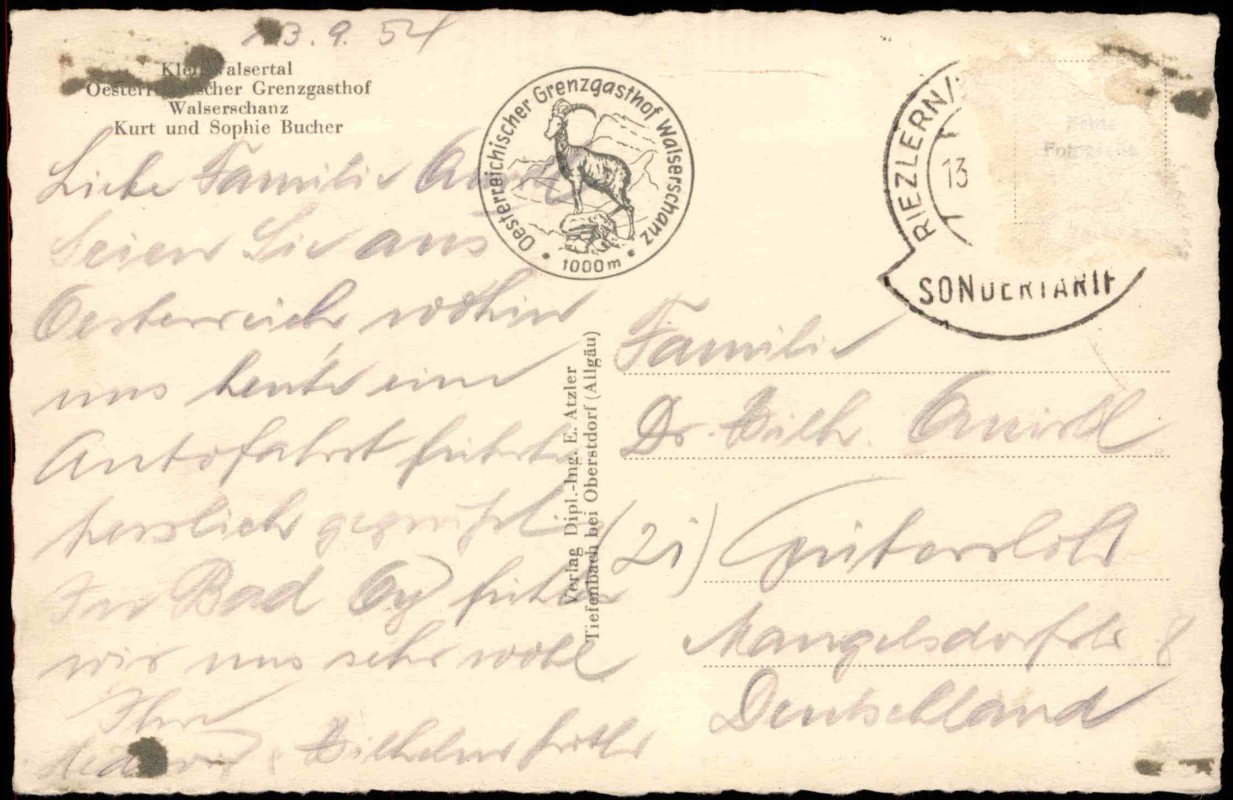 13.9.54
Kleinwalsertal
Oesterreichischer Grenzgasthof
Walserschanz
Kurt und Sophie Bucher
Liebe Familie
Seien Sie aus
Oesterreich wohin
uns heute eine
Autofahrt führte
herzlich gegrüßt
In Bad Oy fühlen
wir uns sehr wohl
Ihre
Oesterreichischer Grenzgasthof Walserschanz
1000m
Verlag Dipl.-Ing. E. Atzler
Tiefenbach bei Oberstdorf (Allgäu)
RIEZLERN/
13
SONDERTARIF
Familie
Dr. Wilh.
Gütersloh
Mangelsdorfstr 8
Deutschland